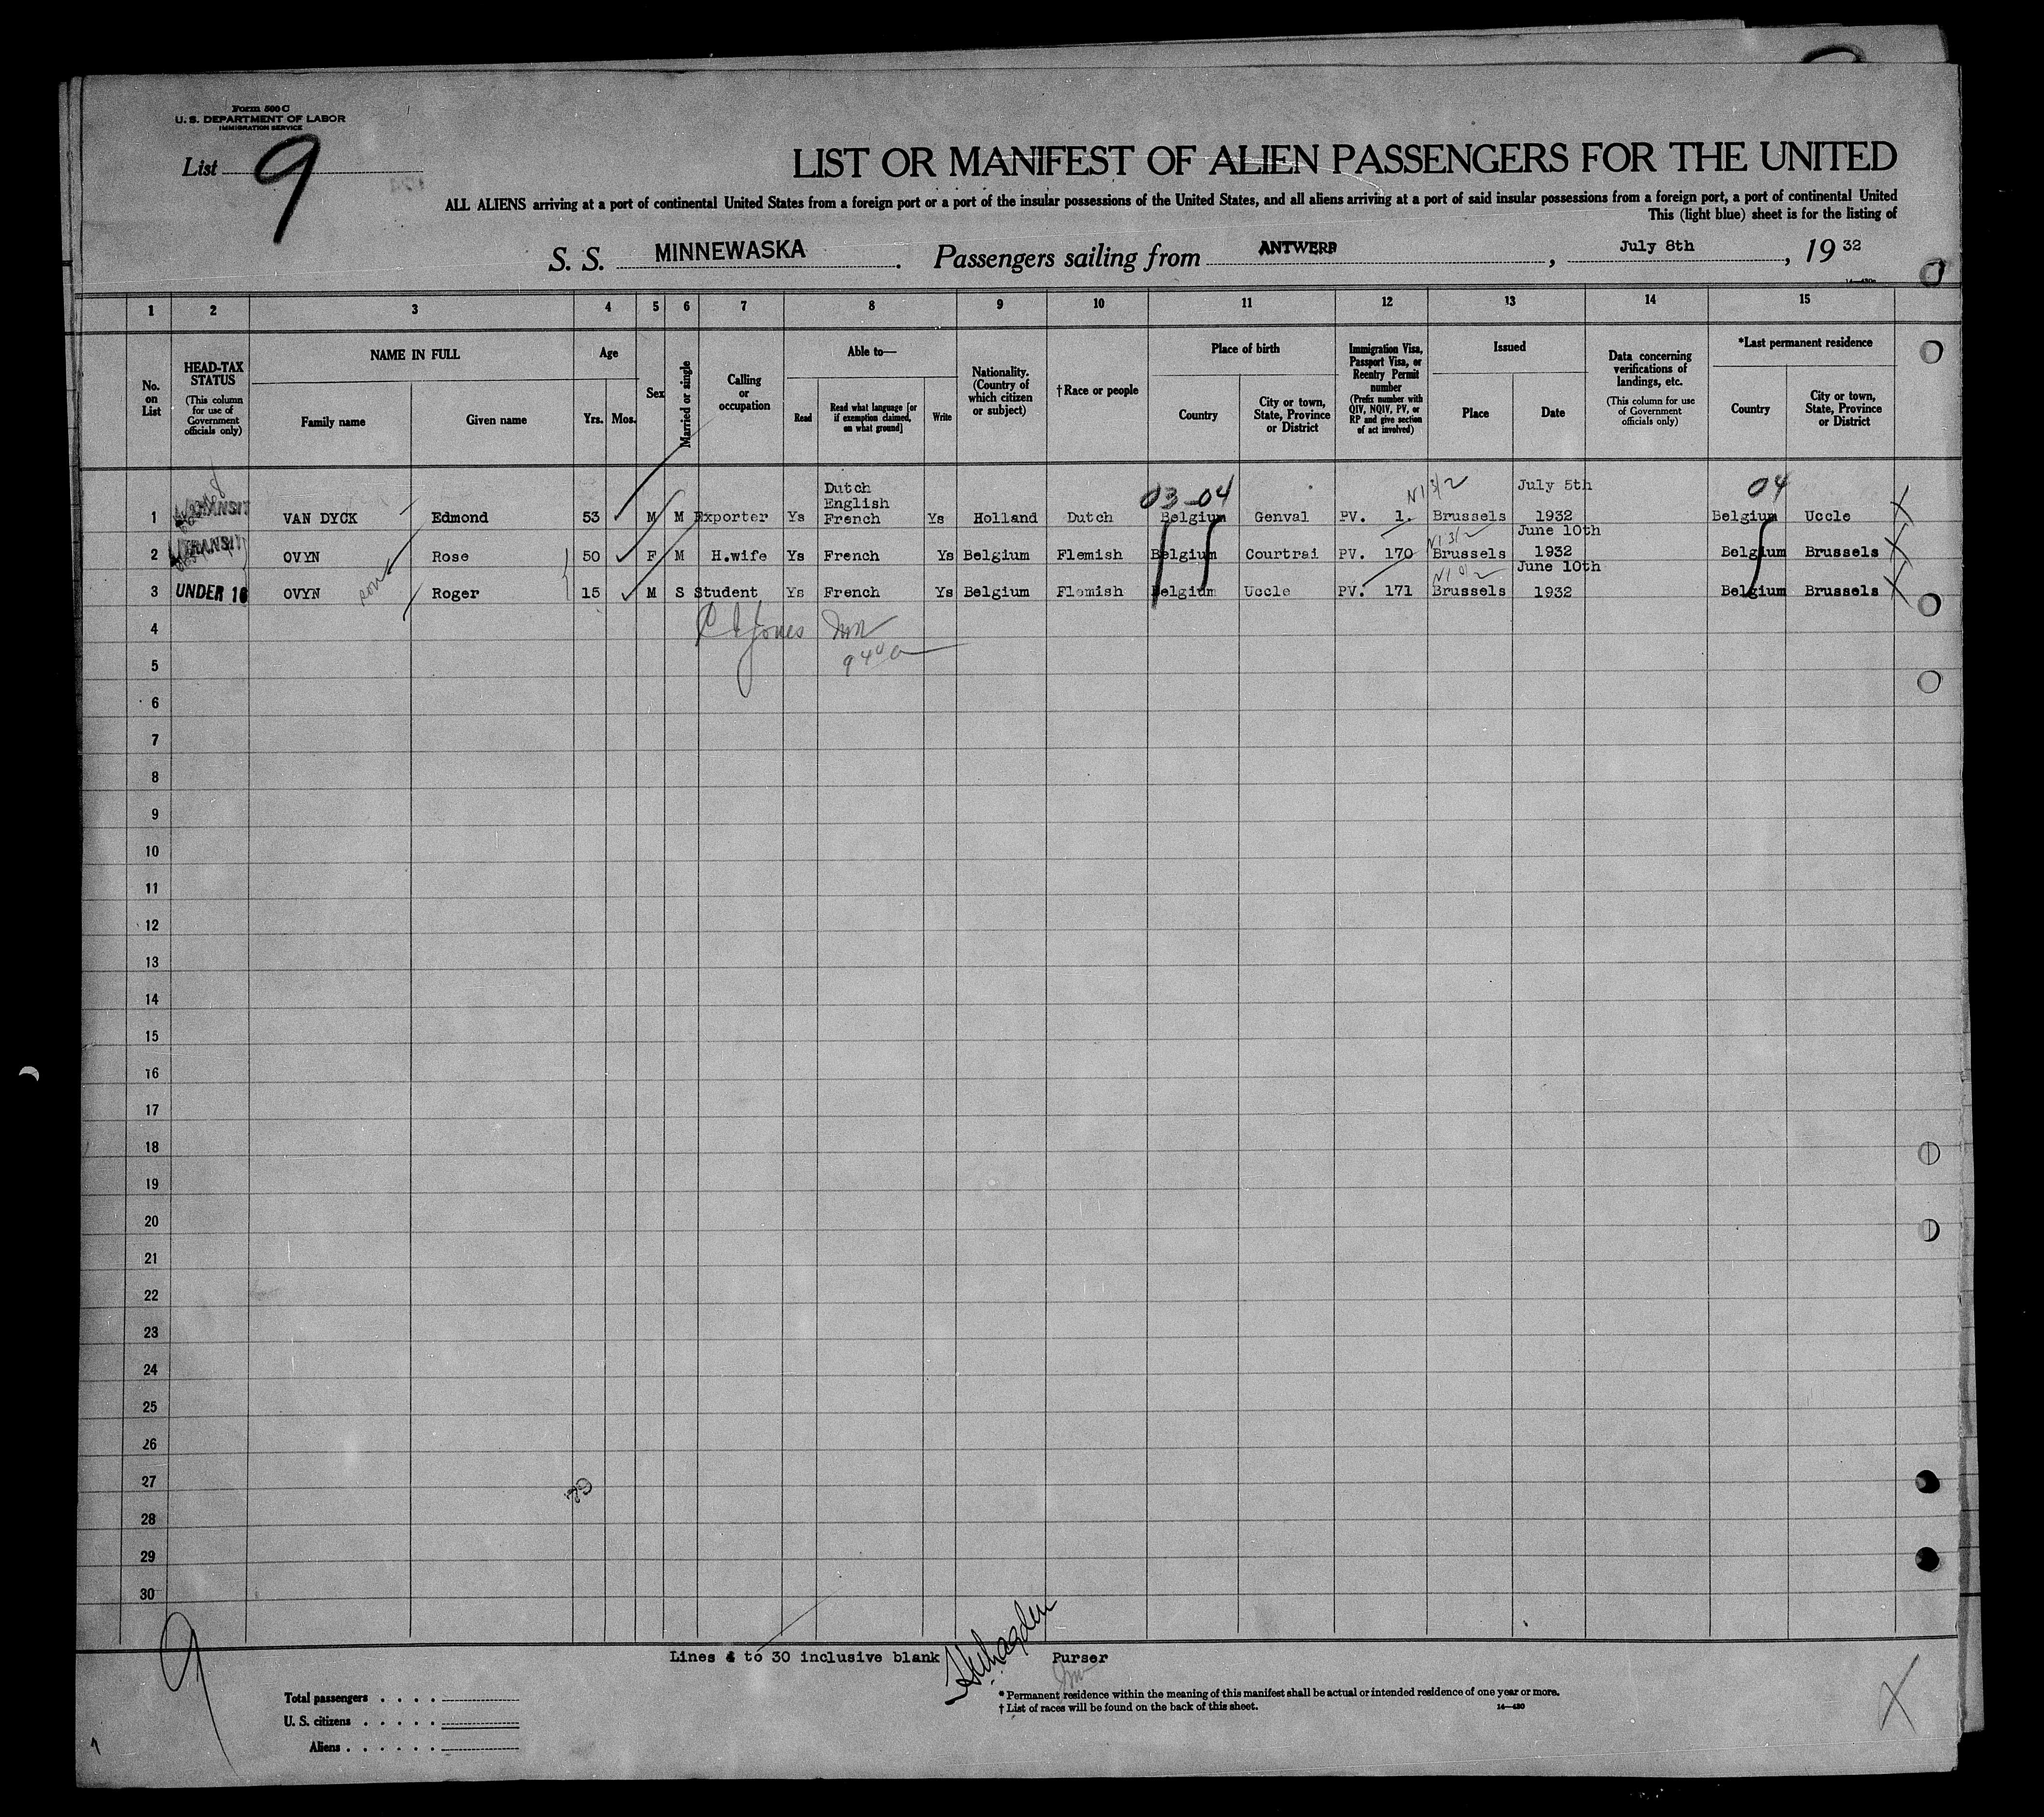 Form 500 C
U. S. DEPARTMENT OF LABOR
IMMIGRATION SERVICE
List 9
LIST OR MANIFEST OF ALIEN PASSENGERS FOR THE UNITED
ALL ALIENS arriving at a port of continental United States from a foreign port or a port of the insular possessions of the United States, and all aliens arriving at a port of said insular possessions from a foreign port, a port of continental United
This (light blue) sheet is for the listing of
S. S. MINNEWASKA. Passengers sailing from ANTWERP, July 8th, 19 32
1 2 3 4 5 6 7 8 9 10 11 12 13 14 15
No. on List
HEAD-TAX STATUS (This column for use of Government officials only)
NAME IN FULL
Family name
Given name
Age
Yrs. Mos.
Sex
Married or single
Calling or occupation
Able to—
Read
Read what language [or if exemption claimed, on what ground]
Write
Nationality. (Country of which citizen or subject)
† Race or people
Place of birth
Country
City or town, State, Province or District
Immigration Visa, Passport Visa, or Reentry Permit number (Prefix number with QIV, NQIV, PV, or RP and give section of act involved)
Issued
Place
Date
Data concerning verifications of landings, etc. (This column for use of Government officials only)
*Last permanent residence
Country
City or town, State, Province or District
03-04 04
1 TRANSIT VAN DYCK Edmond 53 M M Exporter Ys Dutch English French Ys Holland Dutch Belgium Genval PV. 1. Brussels July 5th 1932 Belgium Uccle
2 TRANSIT OVYN Rose 50 F M H.wife Ys French Ys Belgium Flemish Belgium Courtrai PV. 170 Brussels June 10th 1932 Belgium Brussels
3 UNDER 16 OVYN son Roger 15 M S Student Ys French Ys Belgium Flemish Belgium Uccle PV. 171 Brussels June 10th 1932 Belgium Brussels
4
5
6
7
8
9
10
11
12
13
14
15
16
17
18
19
20
21
22
23
24
25
26
27
28
29
30
9
Lines 4 to 30 inclusive blank Purser
Total passengers . . . .
U. S. citizens . . . . .
Aliens . . . . . .
* Permanent residence within the meaning of this manifest shall be actual or intended residence of one year or more.
† List of races will be found on the back of this sheet.
14—430